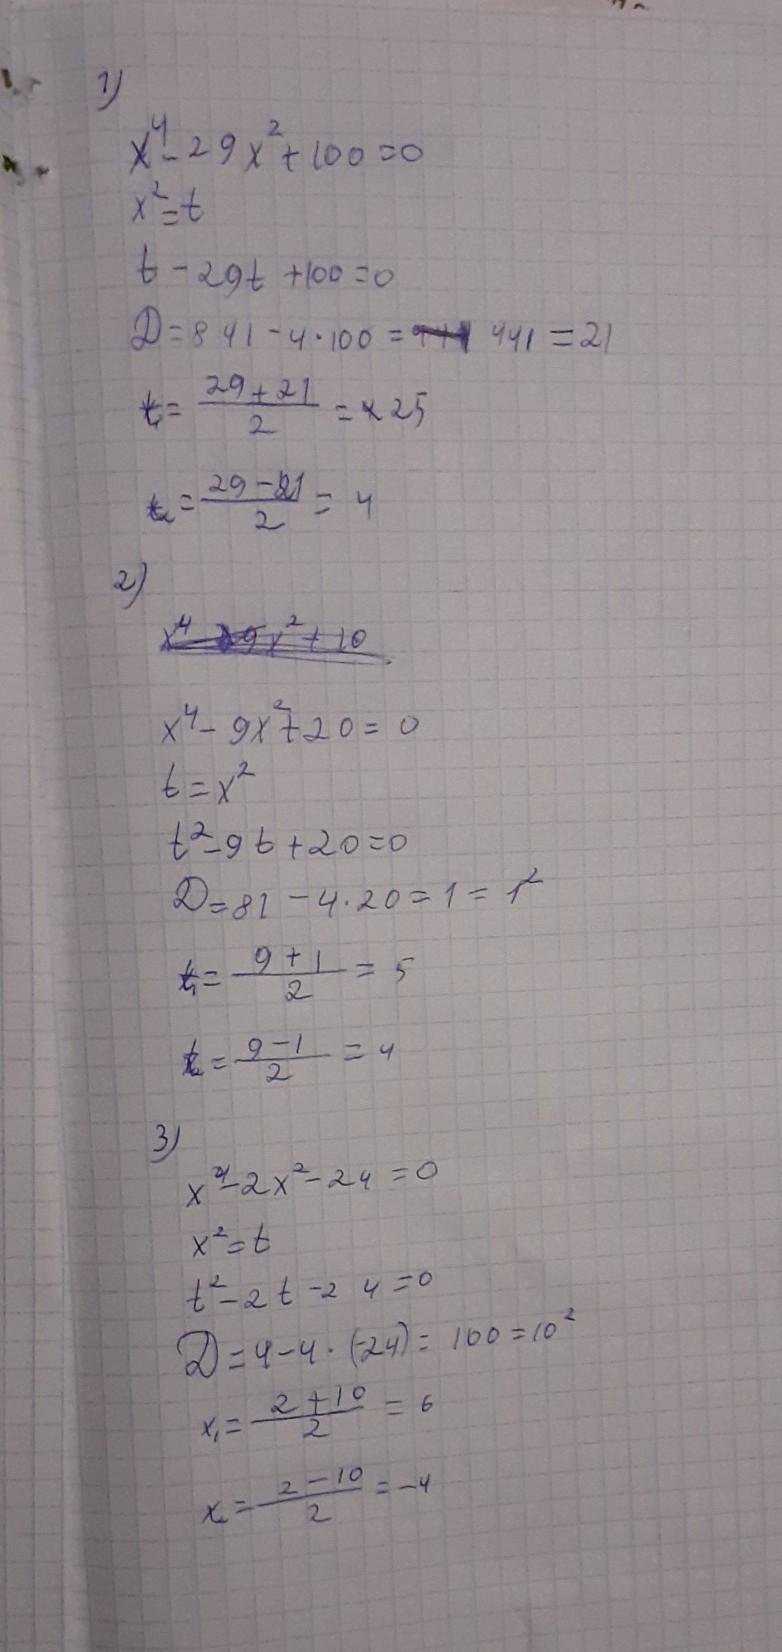 1)
x⁴-29x²+100=0
x²=t
t-29t+100=0
D=841-4·100= 441=21
t₁= (29+21)/2 = 25
t₂= (29-21)/2 = 4
2)
x⁴ 9x²+10
x⁴-9x²+20=0
t=x²
t²-9t+20=0
D=81-4·20=1=1²
t₁= (9+1)/2 = 5
t₂= (9-1)/2 = 4
3)
x⁴-2x²-24=0
x²=t
t²-2t-24=0
D=4-4·(-24)=100=10²
x₁= (2+10)/2 = 6
x₂= (2-10)/2 = -4